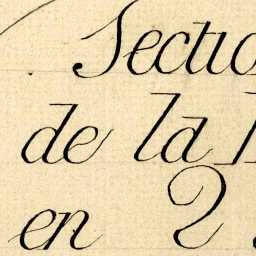 Sectio
de la
en 2